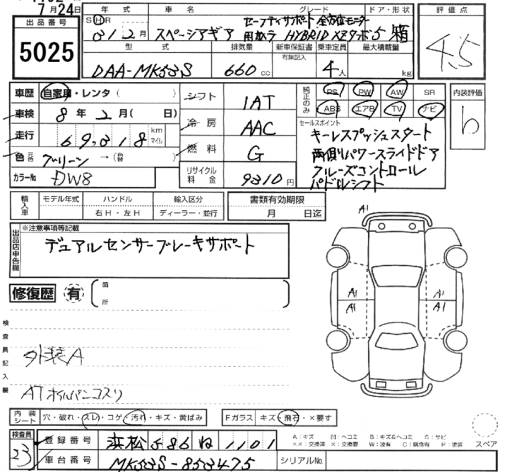 7月24日
出品番号 5025
年式 車名 グレード ドア・形状 評価点
S H R 31年2月 スペーシアギア セーフティサポート 全方位モニター用カメラ HYBRID XZターボ 5 箱 4.5
型式 排気量 新車保証書 乗車定員 最大積載量
DAA-MK53S 660cc 有無記入 4人 kg
車歴 自家用・レンタ( )
車検 8年2月(日)
走行 69,318 km マイル
色 グリーン → (替)
カラーNo DW8
シフト 1AT
冷房 AAC
燃料 G
リサイクル料金 9310円
純正のみ PS PW AW SR
ABS エアB TV ナビ
内装評価 b
セールスポイント
キーレスプッシュスタート
両側パワースライドドア
クルーズコントロール
パドルシフト
輸入車 モデル年式 ハンドル 輸入区分 書類有効期限
年 右H・左H ディーラー・並行 月 日迄
出品店申告欄 ※注意事項等記載
デュアルセンサーブレーキサポート
修復歴 有 箇所
A1
A1 A1
A1
検査員記入欄
外装A
ATオイルパンコスリ
内装シート 穴・破れ・スレ・コゲ・汚れ・キズ・黄ばみ Fガラス キズ・飛石・×要す
検査員 23
登録番号 浜松 586 ね 1101
車台番号 MK53S-853475 シリアルNo
スペア